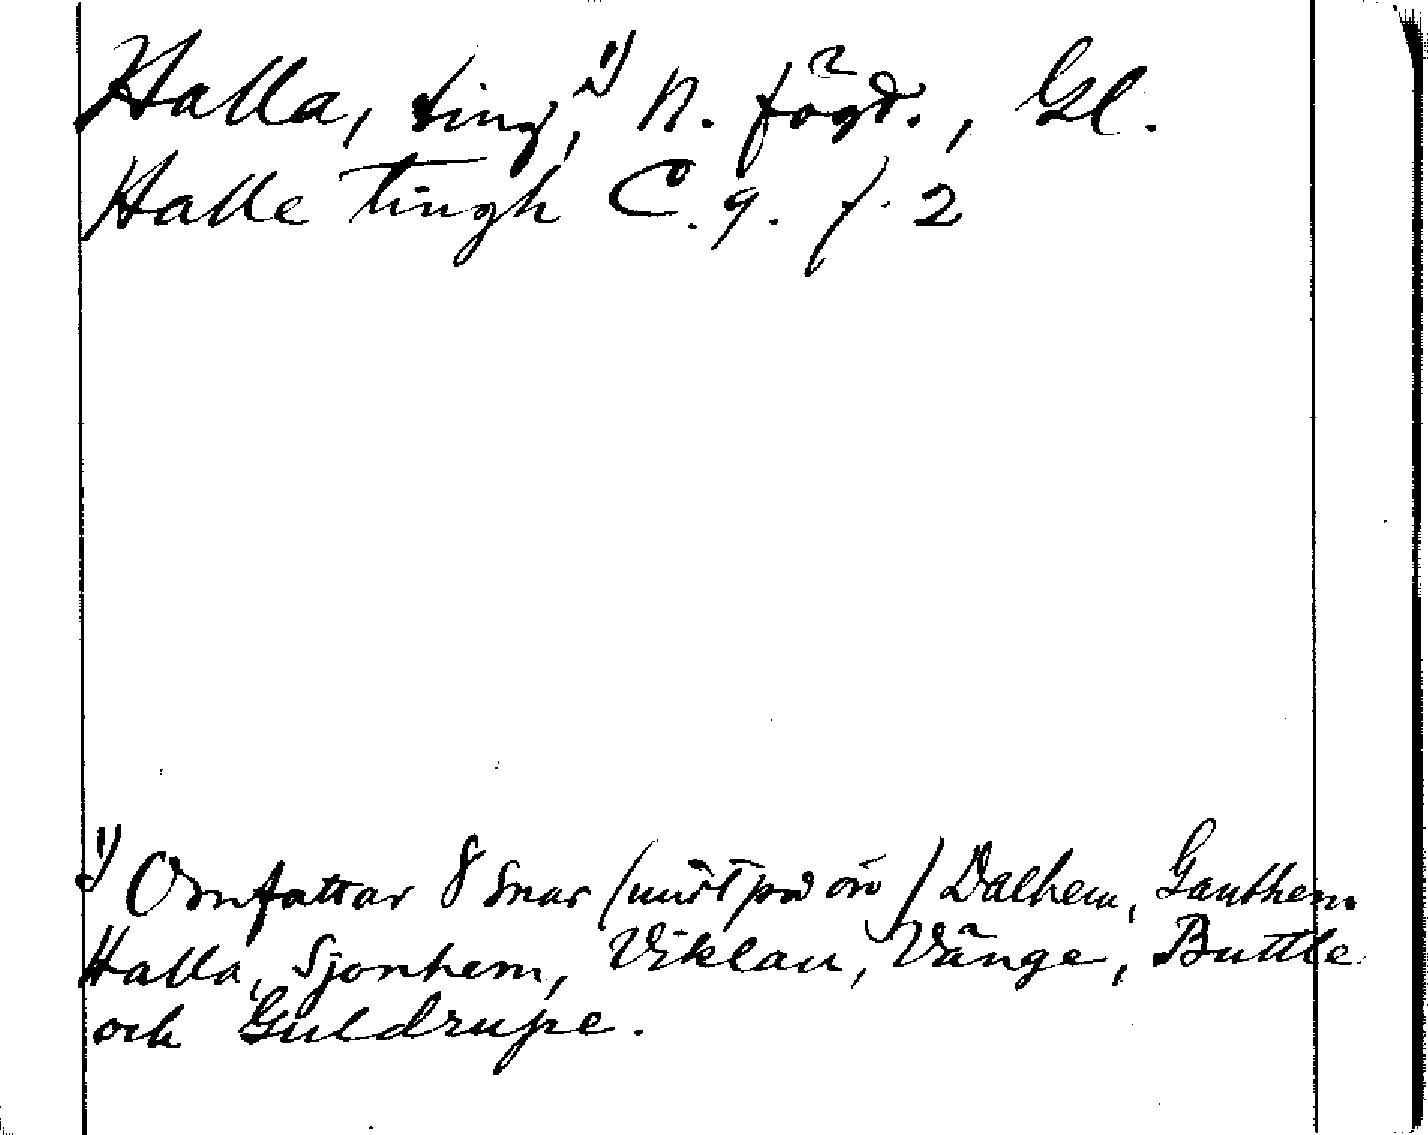 Halla, ting,¹⁾ N. fögd., Gl.
Halle Tingh C. 9. f. 2
¹⁾ Omfattar 8 snar (mitt på ön) Dalhem, Ganthem
Halla, Sjonhem, Viklau, Vänge, Buttle
och Guldrupe.